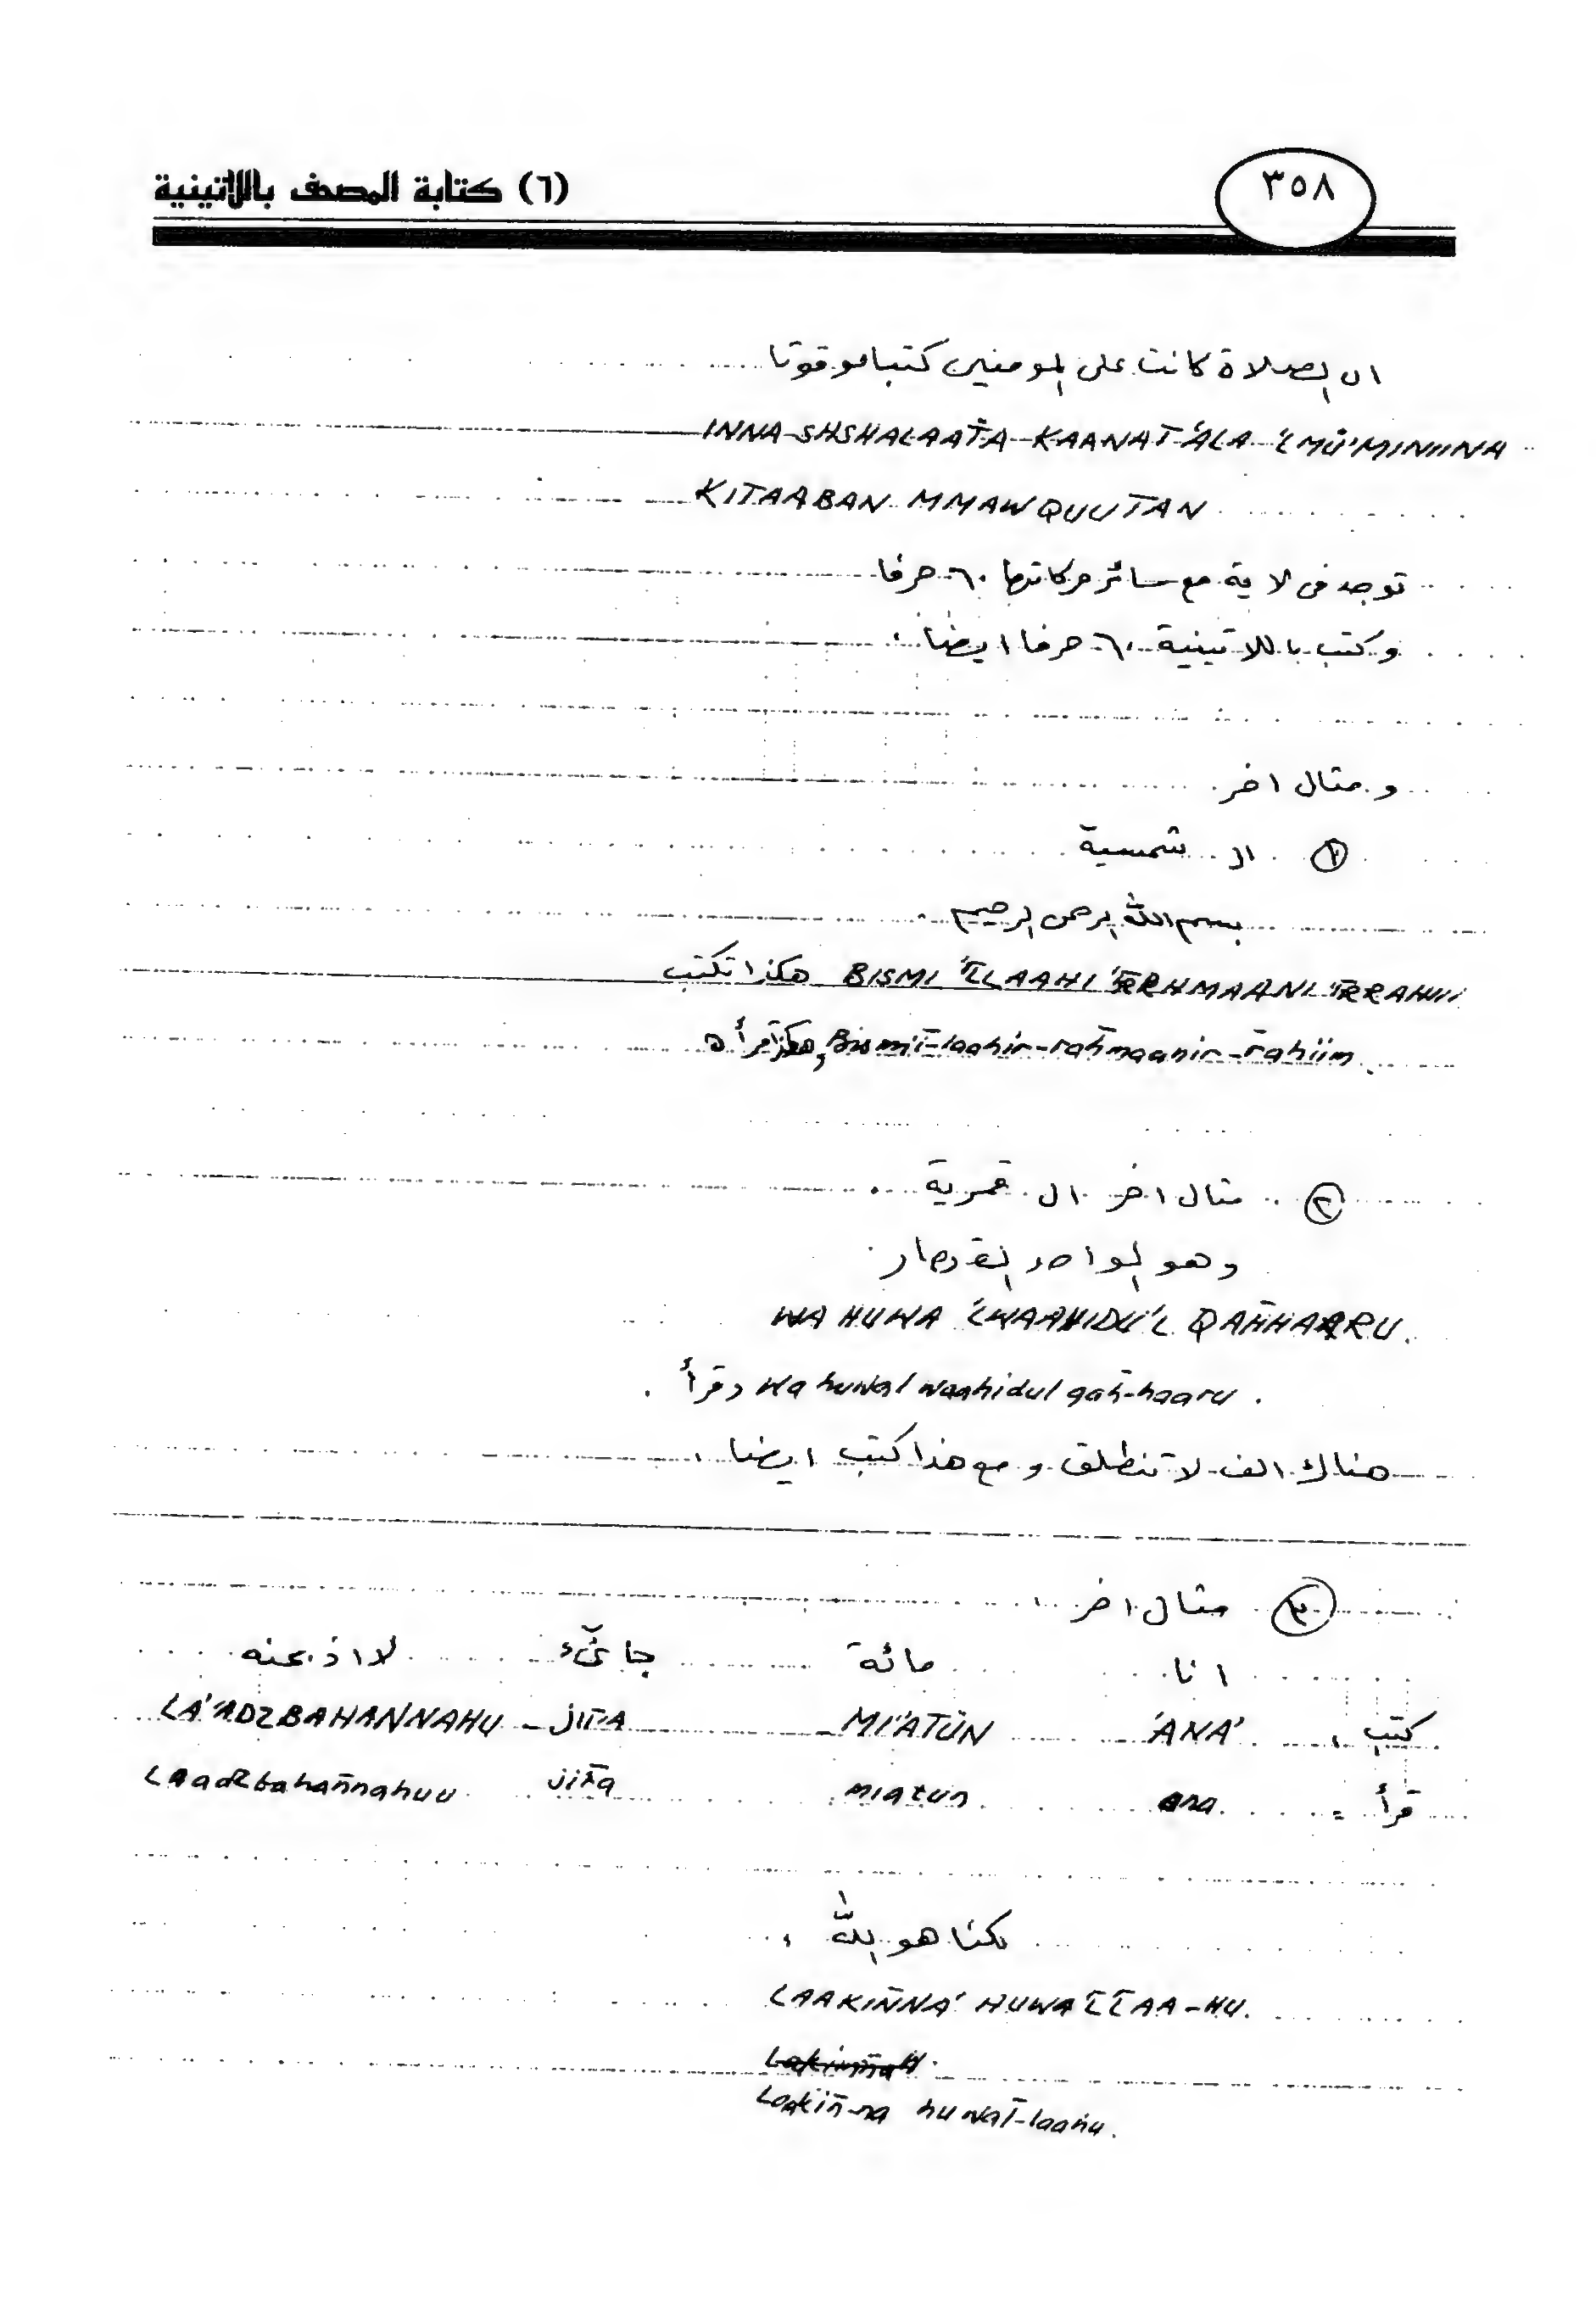 ٣٥٨
(٦) كتابة المصحف باللاتينية
ان الصلاة كانت على المومنين كتبا موقوتا
INNA-SHSHALAATA-KAANAT-'ALA-'LMU'MINIINA
KITAABAN MMAWQUUTAN
توجد فى لاية مع سائر حركاتها ٦٠ حرفا
وكتب باللاتينية ٦٠ حرفا ايضا،
و مثال اخر
(١) ال شمسية
بسم الله الرحمن الرحيم .
هكذا تكتب BISMI 'LLAAHI 'RRHMAANI 'RRAHII
وهكذا قرأ Bismi'l-laahir-rahmaanir-rahiim.
(٢) مثال اخر ال قمرية .
وهو الواحد القهار
WA HUWA 'LWAAHIDU'L QAHHAARU.
وقرأ wa huwal waahidul qah-haaru .
هناك الف لا تنطلق و مع هذا كتب ايضا ،
(٣) مثال اخر
انا مائة جائء لا اذبحنه
كتب ، 'ANA' MI'ATUN LA'ADZBAHANNAHU
قرأ = ana miatun Laadzbahannahuu
لكنا هو الله ،
LAAKINNA' HUWA'LLAA-HU.
Laakin-na huwal-laahu.